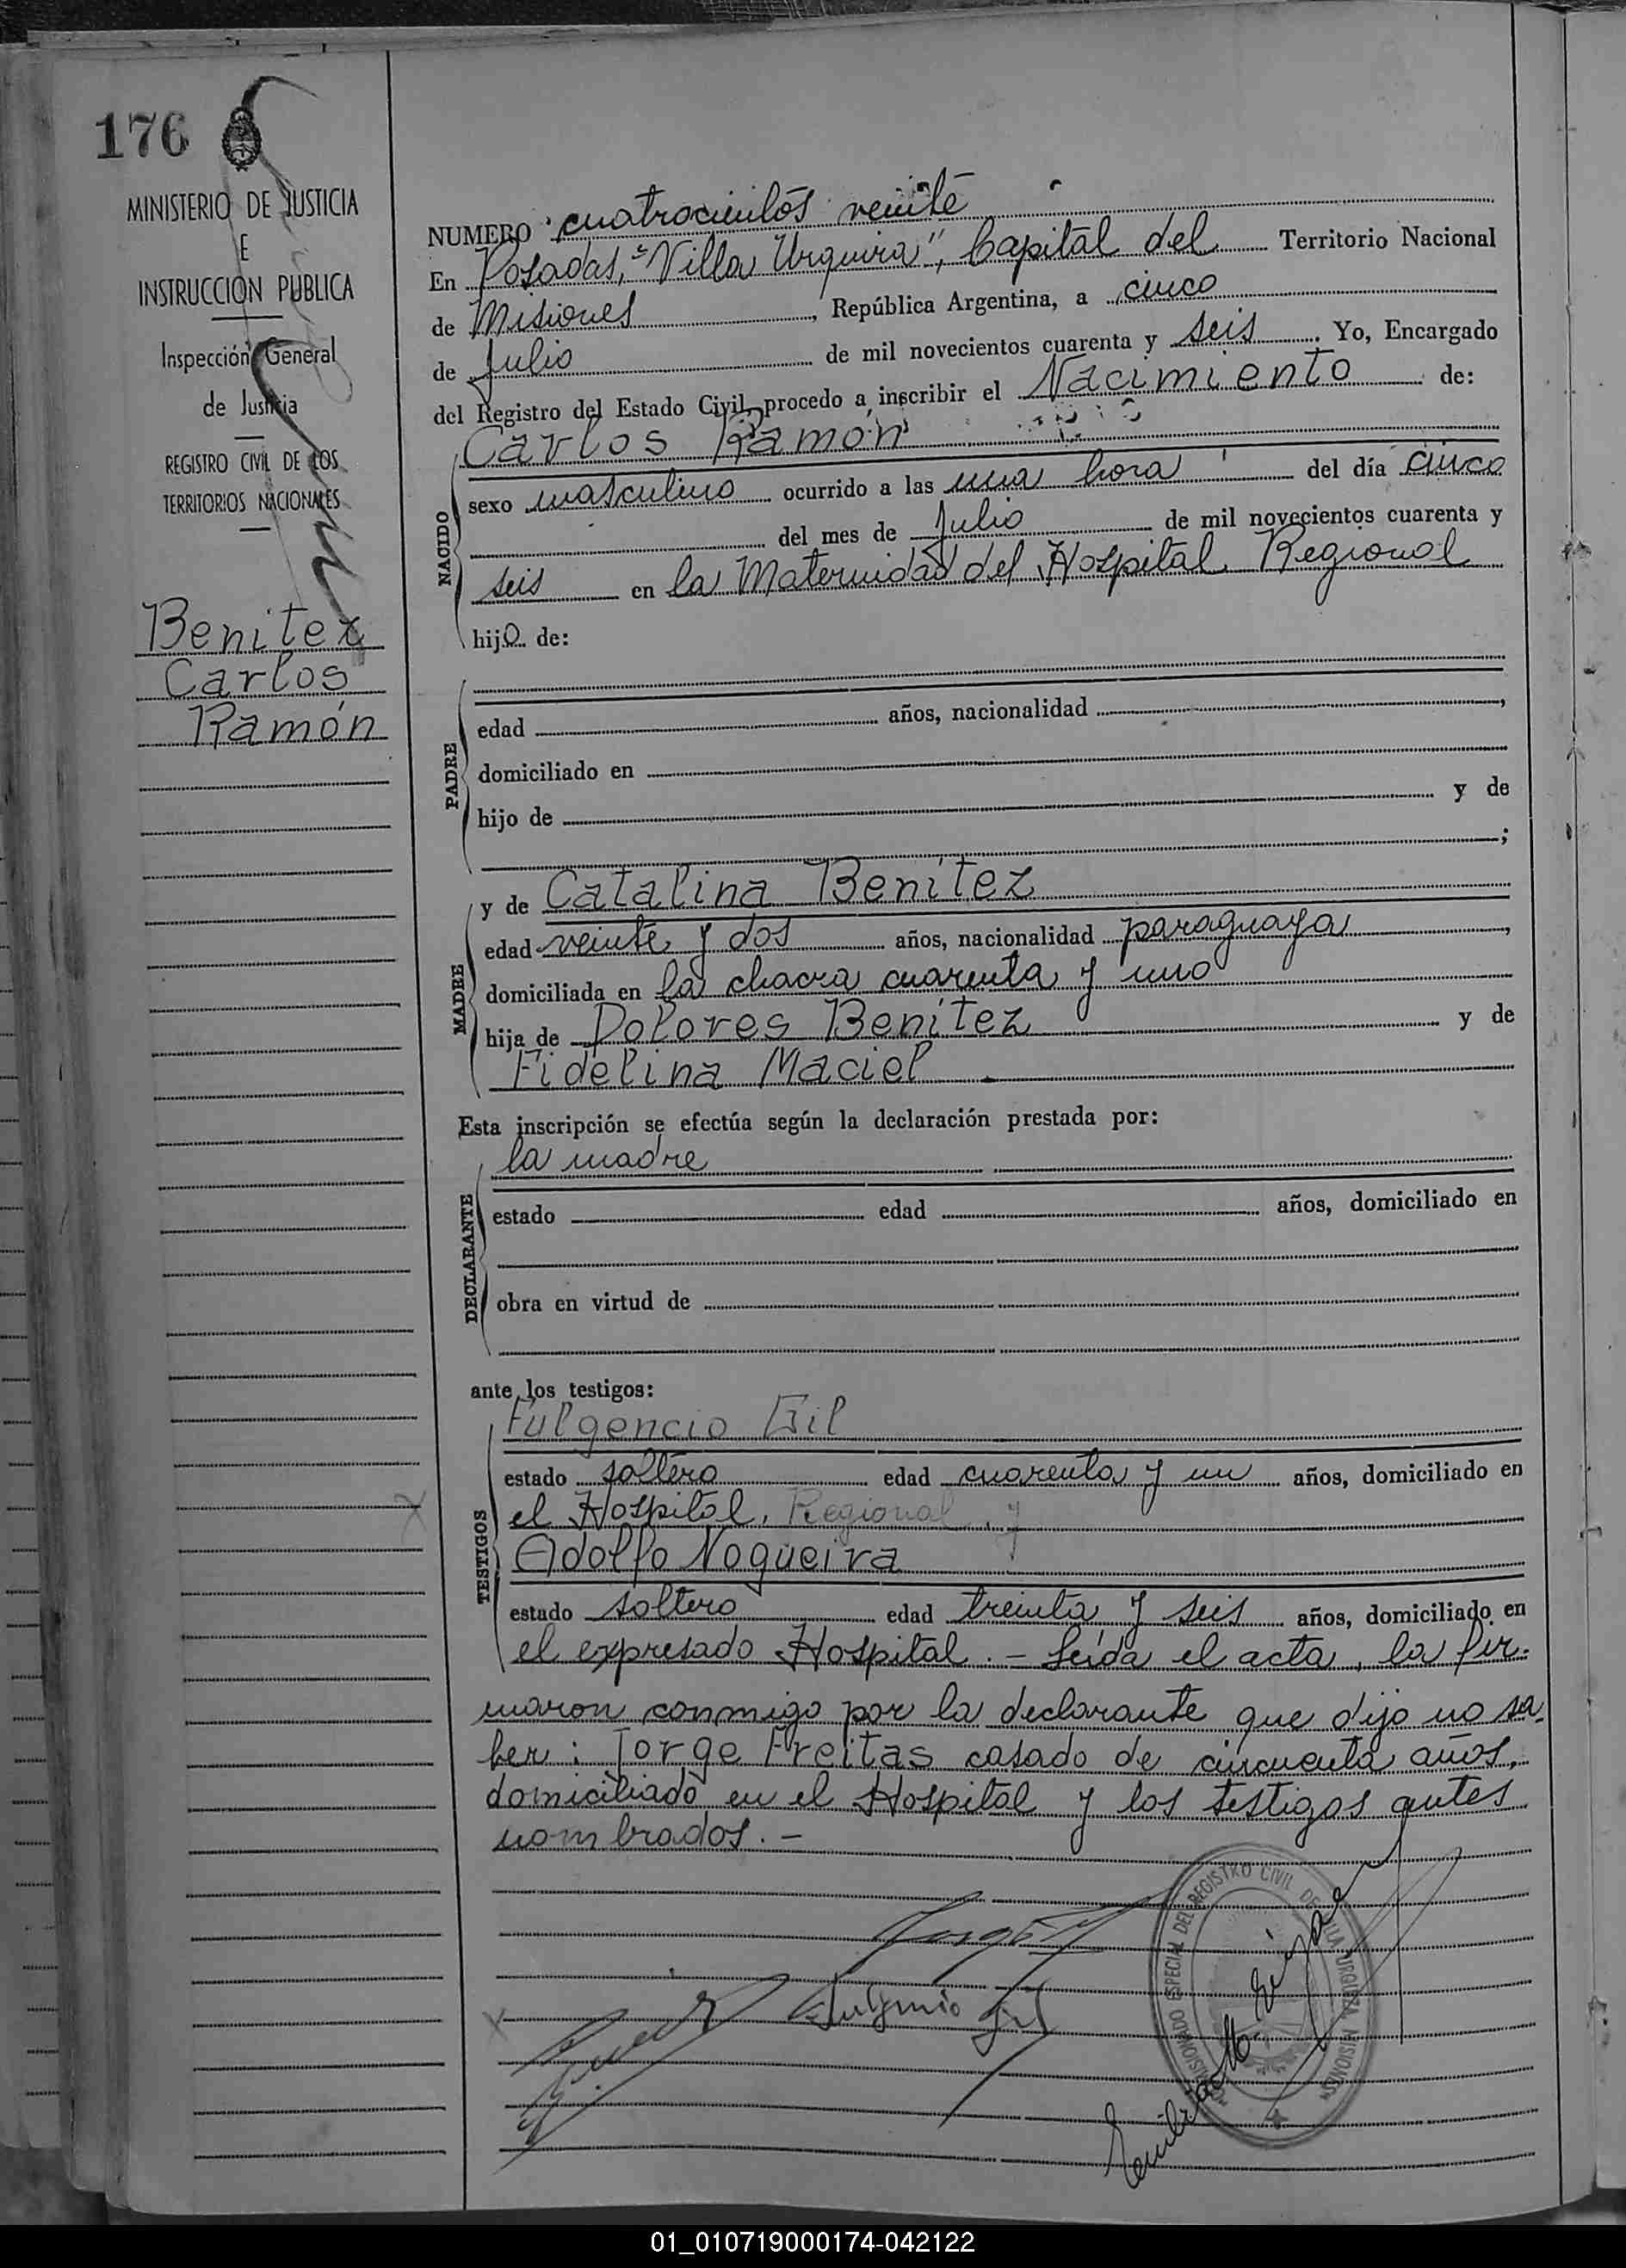 176
MINISTERIO DE JUSTICIA
E
INSTRUCCION PUBLICA
Inspección General
de Justicia
REGISTRO CIVIL DE LOS
TERRITORIOS NACIONALES
Benitez
Carlos
Ramón
NUMERO cuatrocientos veinte
En Posadas, "Villa Urquiza", Capital del Territorio Nacional
de Misiones, República Argentina, a cinco
de Julio de mil novecientos cuarenta y seis. Yo, Encargado
del Registro del Estado Civil, procedo a inscribir el Nacimiento de:
Carlos Ramón
NACIDO
sexo masculino ocurrido a las una hora del día cinco
del mes de Julio de mil novecientos cuarenta y
seis en la Maternidad del Hospital Regional
hijo de:
PADRE
edad años, nacionalidad ,
domiciliado en
hijo de y de
;
MADRE
y de Catalina Benítez
edad veinte y dos años, nacionalidad paraguaya,
domiciliada en la chacra cuarenta y uno
hija de Dolores Benítez y de
Fidelina Maciel
Esta inscripción se efectúa según la declaración prestada por:
DECLARANTE
la madre
estado edad años, domiciliado en
obra en virtud de
ante los testigos:
TESTIGOS
Fulgencio Gil
estado soltero edad cuarenta y un años, domiciliado en
el Hospital, Regional, y
Adolfo Nogueira
estado soltero edad treinta y seis años, domiciliado en
el expresado Hospital. - Leída el acta, la fir-
maron conmigo por la declarante que dijo no sa-
ber: Jorge Freitas casado de cincuenta años,
domiciliado en el Hospital y los testigos antes
nombrados. -
Fulgencio Gil
COMISIONADO ESPECIAL DEL REGISTRO CIVIL DE VILLA URQUIZA MISIONES
01_010719000174-042122